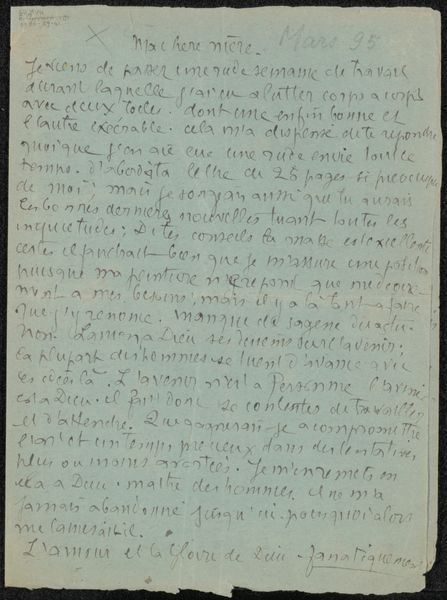 Mars 95
Ma chere mère.
Je viens de passer une rude semaine de travail
durant laquelle j'ai eu a lutter corps a corps
avec deux toiles. dont une enfin bonne et
l'autre exécrable. cela m'a dispensé de te repondre
quoique j'en aie eue une rude envie tout ce
temps. d'abord ta lettre de 26 pages si
de moi; mais je aussi que tu aurais
les bonnes dernières nouvelles tuant toutes les
inquietudes; De tes conseils la masse est excellente
certes il faudrait bien que je m'assure une position
puisque ma peinture ne repond que
a mes besoins; mais il y a là tant a faire
que j'y renonce. manque de sagesse
non. Laissons a Dieu ses desseins sur l'avenir.
La plupart des hommes se tuent d'avance avec
ces idées là. L'avenir n'est a Personne l'avenir
est a Dieu. il faut donc se contenter de travailler
et d'attendre. Que gagnerais-je a compromettre
et un temps precieux dans des tentatives
plus ou moins avortées. Je m'en remets en
cela a Dieu. maitre des hommes il ne m'a
jamais abandonné jusqu'ici. pourquoi alors

L'amour et la gloire de Dieu - fanatiquement